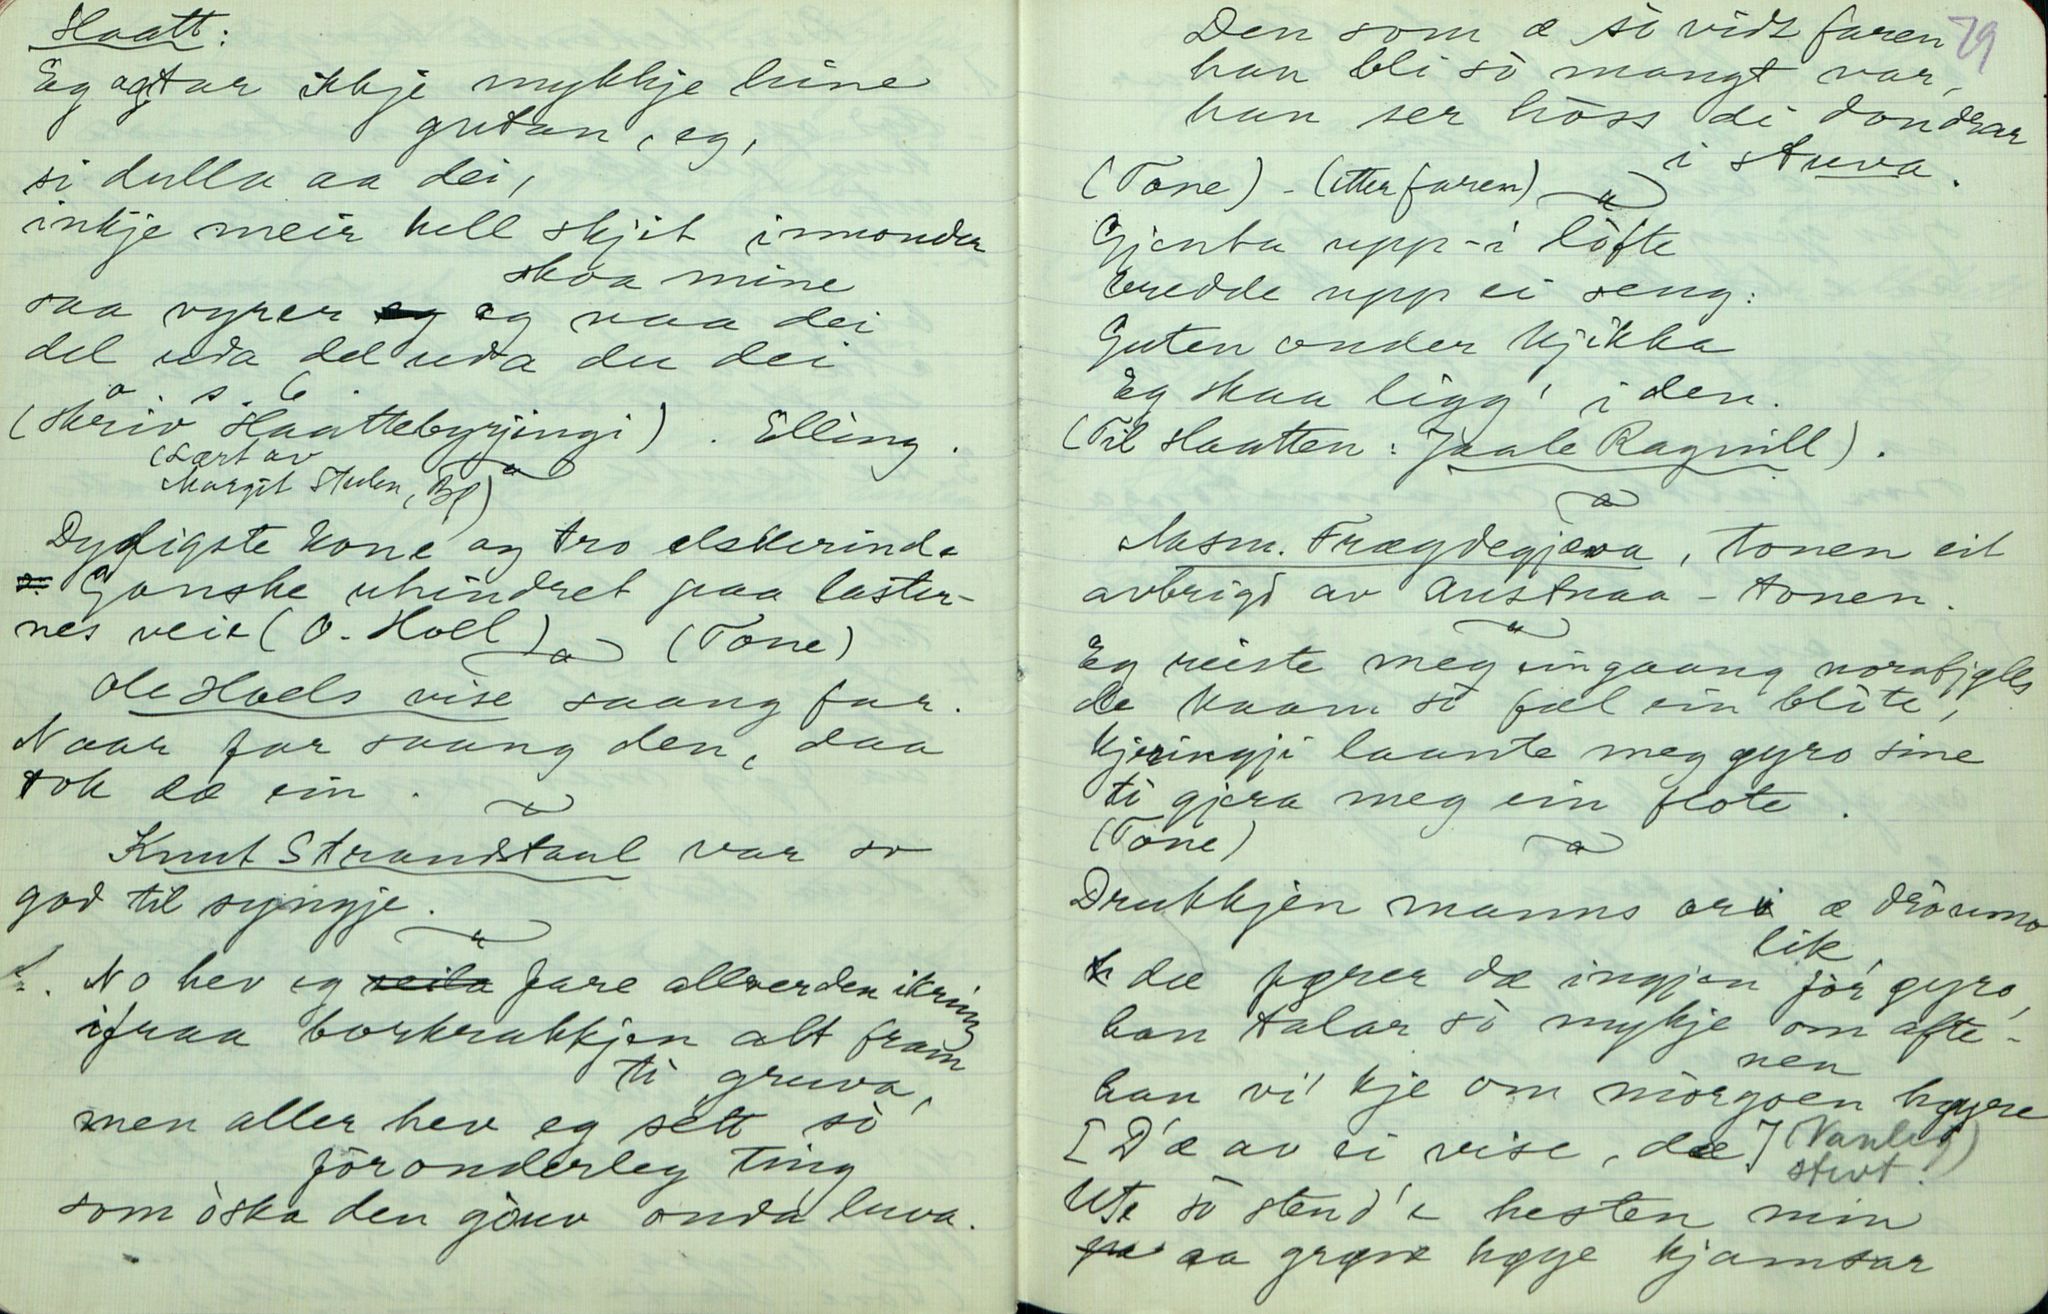 Haatt:
Eg agtar ikkje mykkje hine
gutan, eg,
si dulla aa dei,
inkje meir hell skjit imonder
skoa mine
saa vyrer eg eg naa dei
del uda del uda du dei
(skriv Haattebyrjingi). Elling.
(Lært av
Margit Stuen, Bf)
Dydigste kone og tro elskerinde
Ganske uhindret paa laster-
nes veie (O. Hoel) (Tone)
Ole Hoels vise saang far.
Naar far saang den, daa
tok dæ ein.
Knut Strandstaul var so
god til syngje.
No hev eg reila fare allverden ikring
ifraa borkrakkjen alt fram
ti gruva,
men aller hev eg sett sò
fòronderleg ting
som òska den gouv onda luva.
79
Den som æ sò vidt faren
han bli sò mangt var,
han ser hòss di dondrar
i stuva.
(Tone) - (etter faren)
Gjenta upp-i lòfte
bredde upp ei seng:
Guten onder kjikka
Eg skaa ligg' i den.
(Til Haatten: Jaale Ragnill).
Aasm. Frægdegjæva, tonen eit
avbrigd av Austnaa-tonen.
Eg reiste meg eingaang norafjølls
de kaam sò fæl ein blòte,
kjeringji laante meg gyro sine
ti gjera meg ein flote.
(Tone)
Drukkjen manns ori æ dròumo
lik
dæ færer dæ ingjen fòr' gyro,
han talar sò mykje om afte-
nen
han vi' kje om mòrgoen høyre
[D'æ av ei vise, dæ] (Vanleg)
stevt.
Ute sò stend'e hesten min
aa grøne høye kjamsar